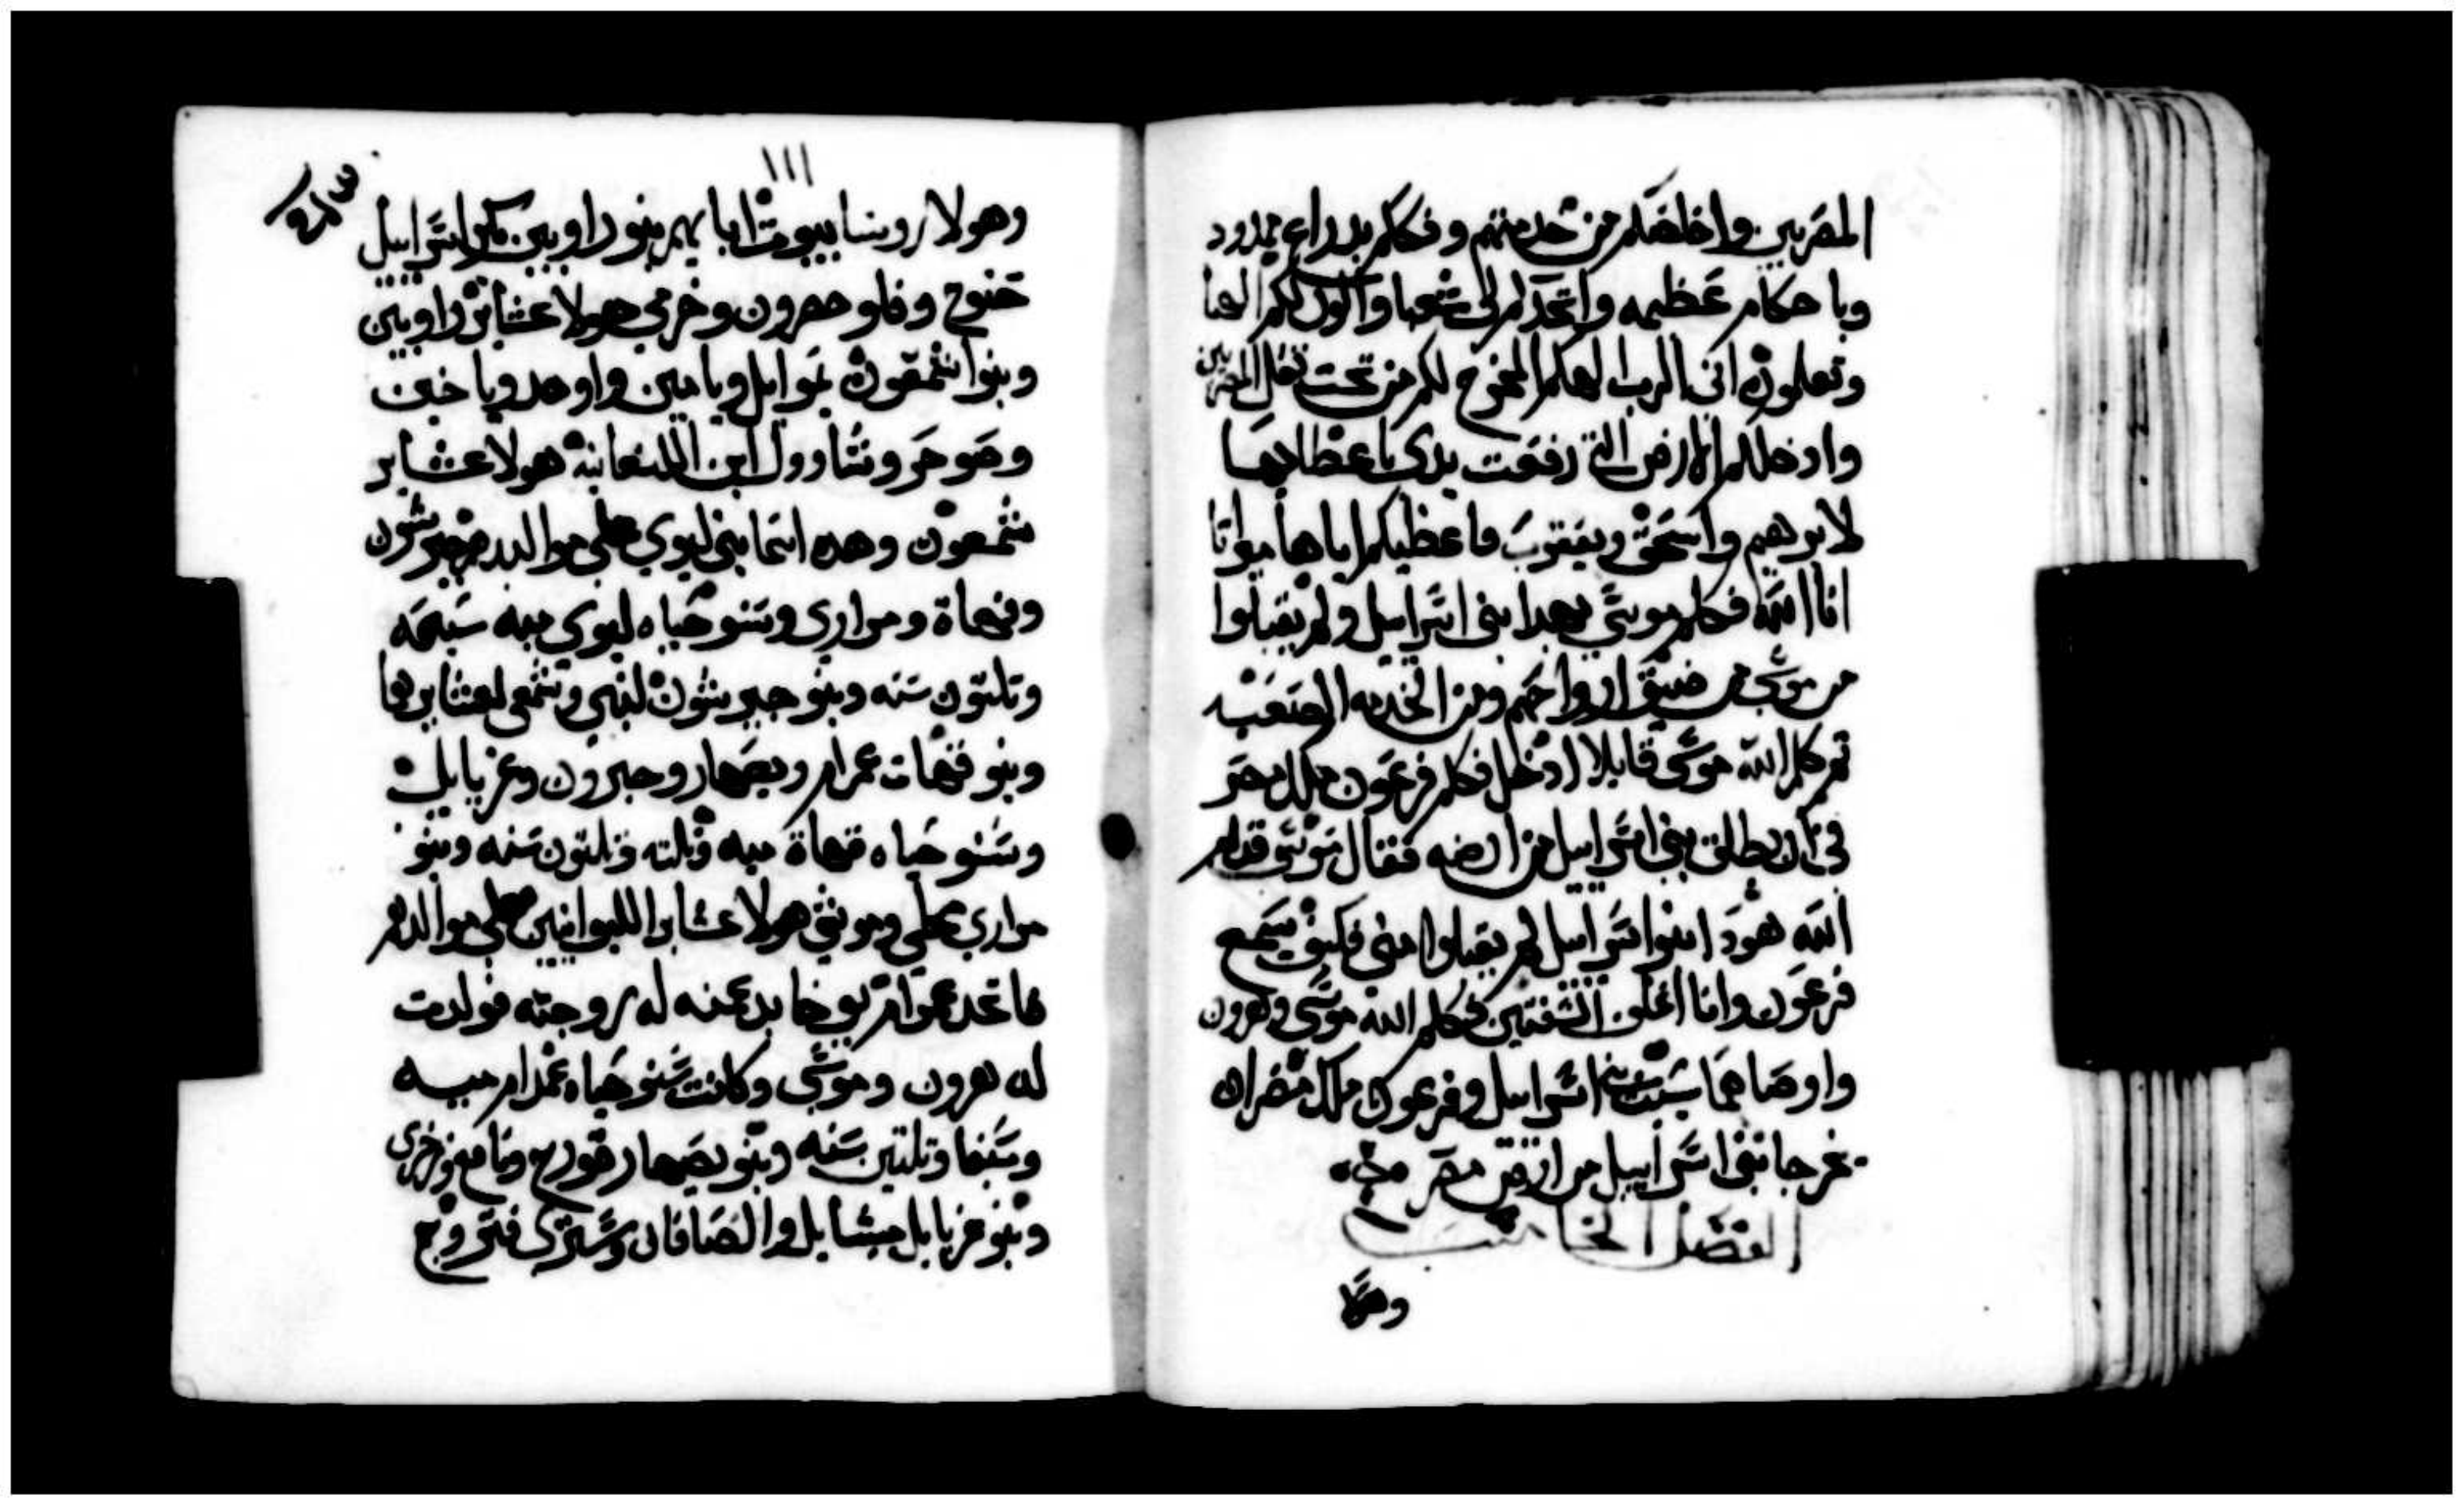 المصريين واخلصكم من خدمتهم وفككم بدراع ممدود
وباحكام عظيمه واتخدكم لي شعبا واكون لكم الها
وتعلمون اني الرب الهكم المخرج لكم من تحت ثقل المصريين
وادخلكم الارض التي رفعت يدي باعطايها
لابرهيم واسحق ويعقوب فاعطيكم اياها ميراتا
انا الله فكلم موسى بهدا بني اسراييل ولم يقبلوا
من موسى من ضيق ارواحهم ومن الخدمه الصعبه
تم كلم الله موسى قايلا ادخل فكلم فرعون ملك مصر
في ان يطلق بني اسراييل من ارضه فقال موسى قدام
الله هودا بنوا اسراييل لم يقبلوا مني فكيف يسمع
فرعون وانا اغلف الشفتين فكلم الله موسى وهرون
واوصاهما بسبب بني اسراييل وفرعون ملك مصر ان
يخرجا بني اسراييل من ارض مصر
الفصل الخامس
وهولا
١١١
وهولا روسا بيوت ابايهم بنو راوبين بكر اسراييل
حنوخ وفلو حصرون وخرمي هولا عشاير راوبين
وبنوا شمعون يموايل ويامين واوهد وياخين
وصوحر وشاوول ابن الكنعانية هولا عشاير
شمعون وهده اسما بني ليوي على مواليدهم جيرشون
وقهاة ومراري وسنو حياه ليوي ميه سبعه
وتلتون سنه وبنو جيرشون لبني وشمعي لعشايرها
وبنو قهات عمرام ويصهار وحبرون وعزيايل
وسنو حياه قهاة ميه وتلته وتلتون سنه وبنو
مراري محلي وموشي هولا عشاير الليوانيين على مواليدهم
فاتخد عمرام يوخابد عمته له زوجته فولدت
له هرون وموسى وكانت سنو حياه عمرام ميه
وسبعا وتلتين سنه وبنو يصهار قورح ونافع وزخري
وبنو عزيايل ميشايل والصافان وستري فتزوج